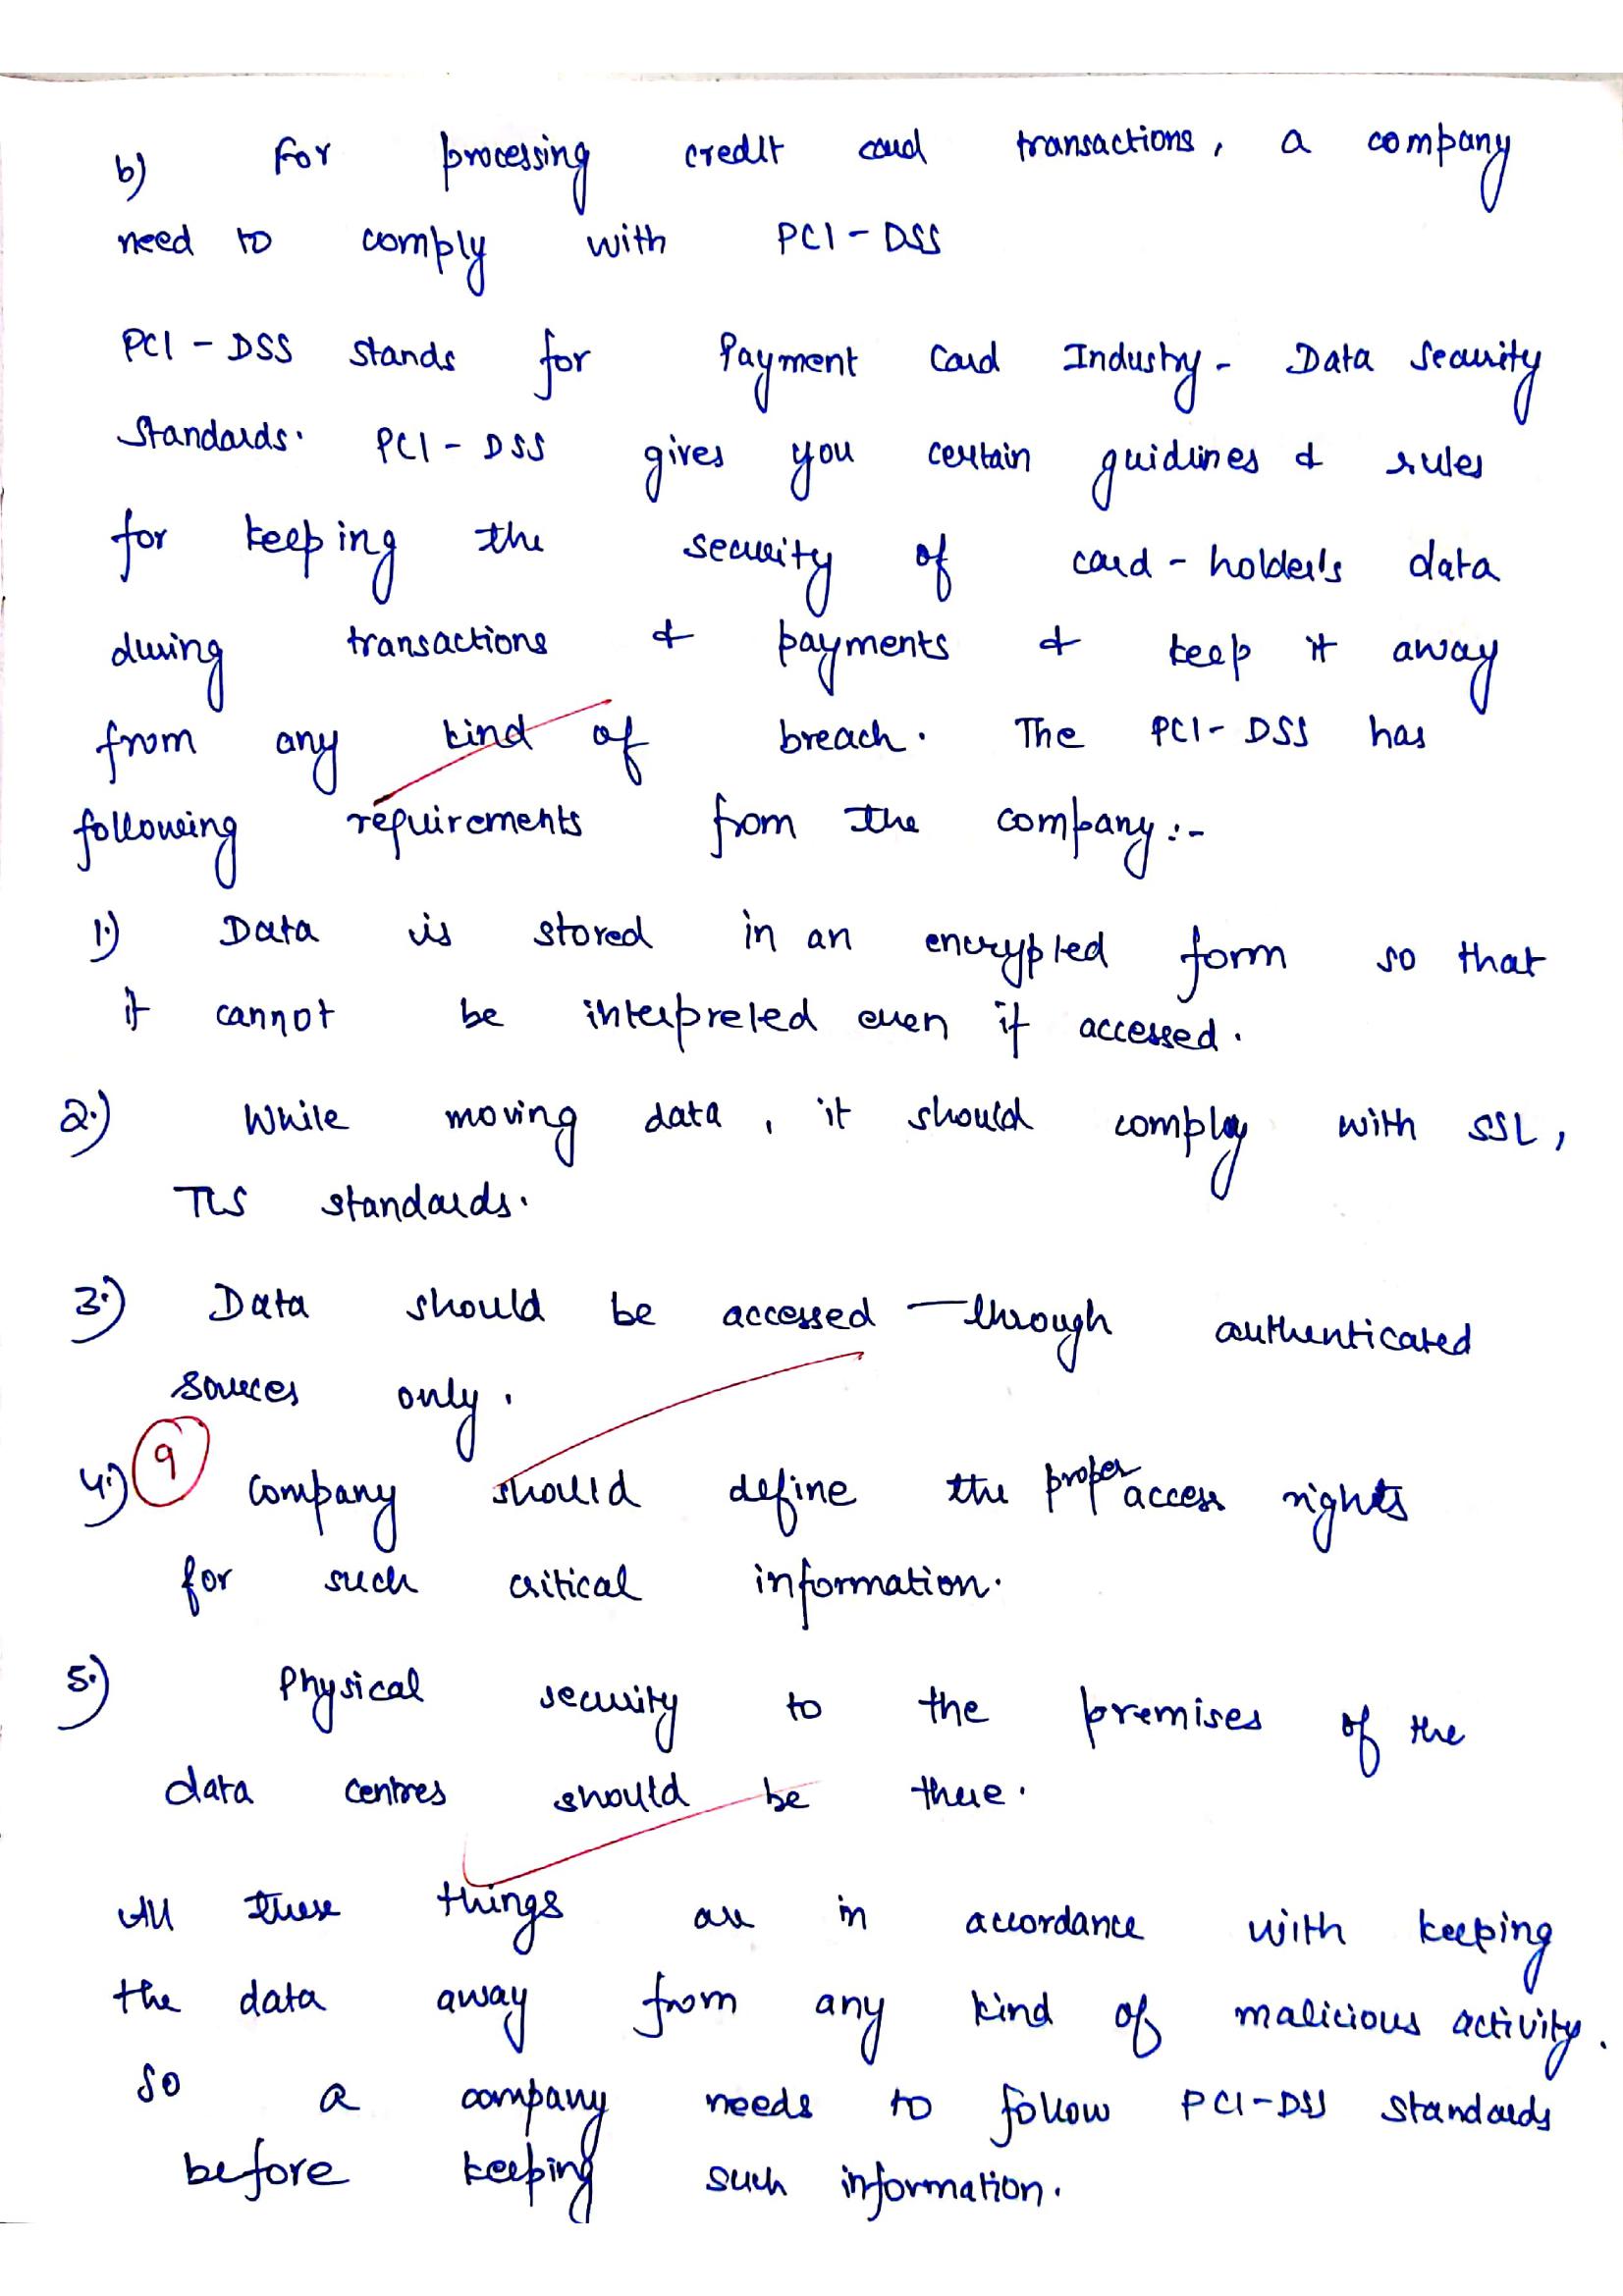 b) For processing credit card transactions, a company
need to comply with PCI-DSS
PCI-DSS stands for Payment Card Industry - Data Security
Standards. PCI-DSS gives you certain guidlines & rules
for keeping the security of card-holder's data
during transactions & payments & keep it away
from any kind of breach. The PCI-DSS has
following requirements from the company:-
1.) Data is stored in an encrypted form so that
it cannot be interpreted even if accessed.
2.) While moving data, it should comply with SSL,
TLS standards.
3.) Data should be accessed through authenticated
sources only.
9
4.) Company should define the proper access rights
for such critical information.
5.) Physical security to the premises of the
data centres should be there.
All these things are in accordance with keeping
the data away from any kind of malicious activity.
So a company needs to follow PCI-DSS standards
before keeping such information.